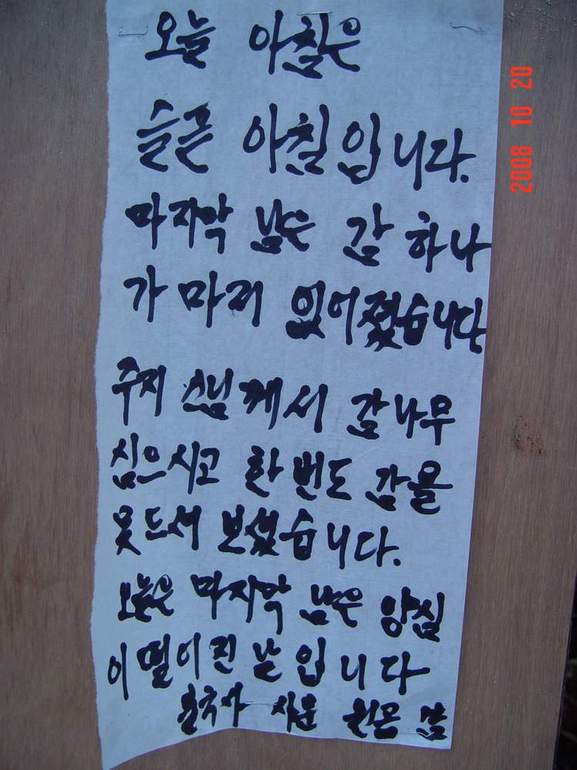 오늘 아침은
슬픈 아침입니다.
마지막 남은 감 하나
가 마저 없어졌습니다
주지 스님께서 감나무
심으시고 한 번도 감을
못드셔 보셨습니다.
오늘은 마지막 남은 양심
이 떨어진 날입니다
2008 10 20